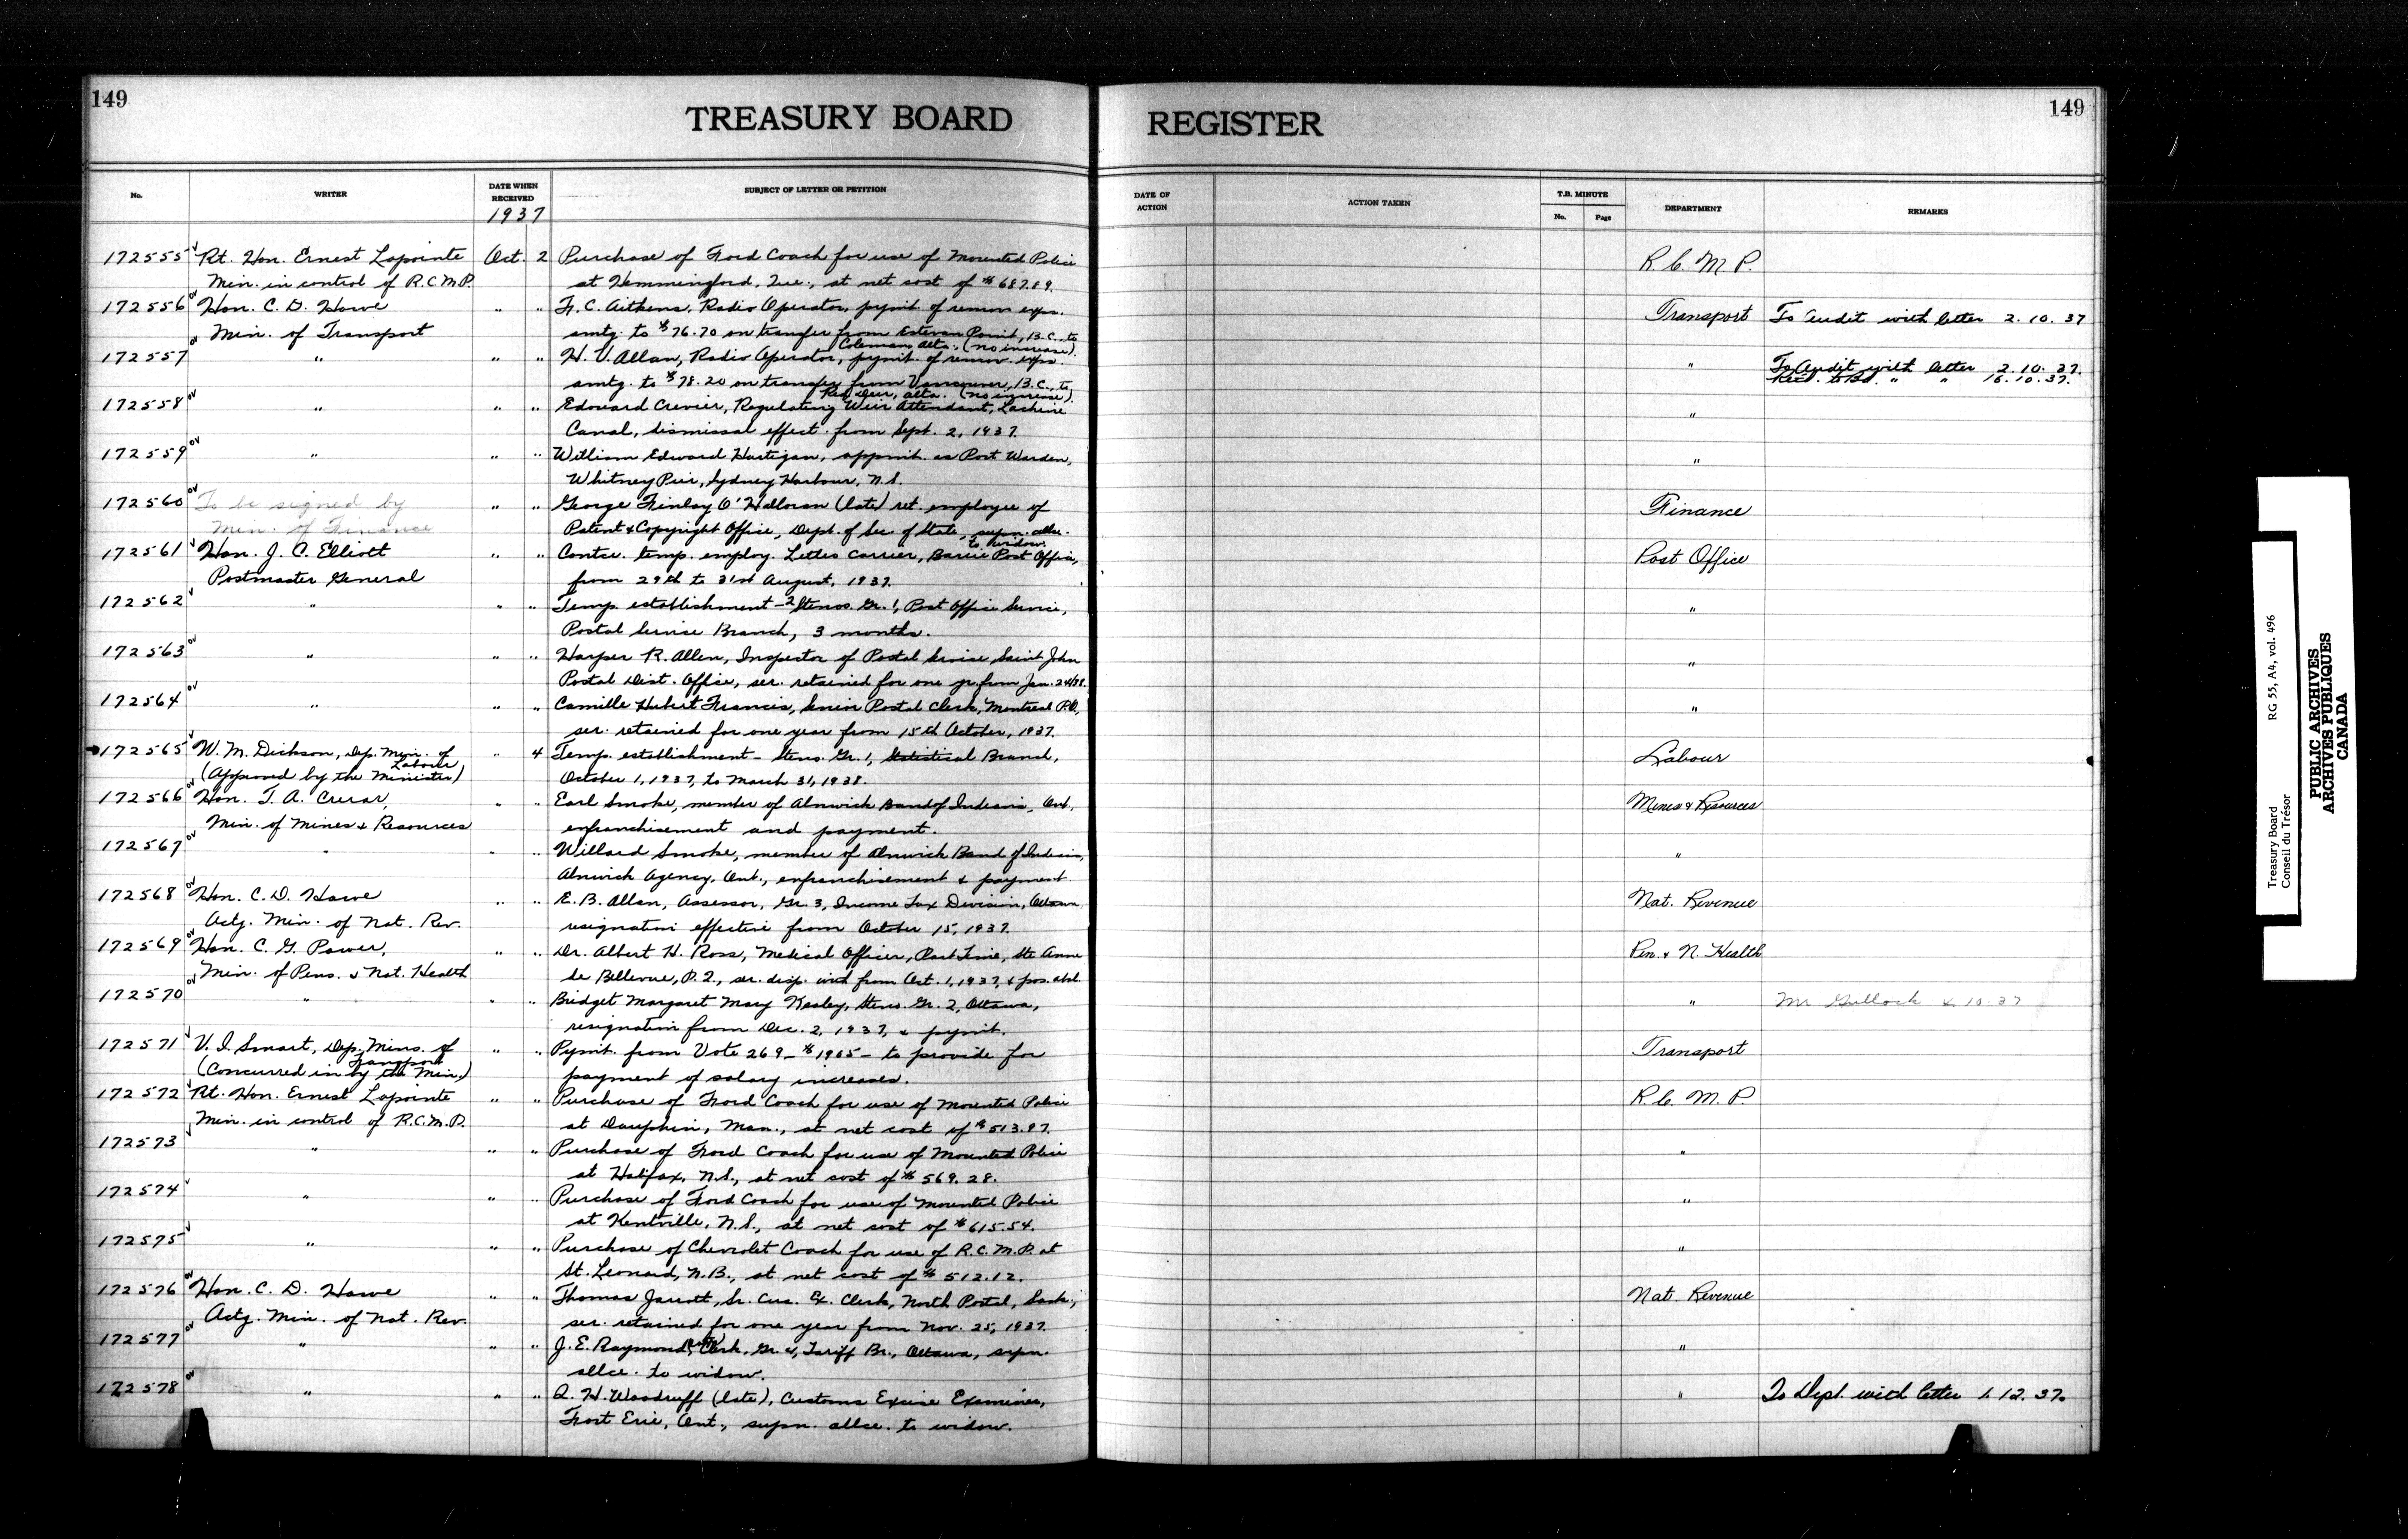 149
TREASURY BOARD REGISTER
149
No. WRITER DATE WHEN RECEIVED SUBJECT OF LETTER OR PETITION DATE OF ACTION ACTION TAKEN T.B. MINUTE No. Page DEPARTMENT REMARKS
1937
172555 Rt. Hon. Ernest Lapointe Oct. 2 Purchase of Ford Coach for use of Mounted Police R.C.M.P.
Min. in control of R.C.M.P. at Hemmingford, Que., at net cost of $687.89.
172556 Hon. C. D. Howe " " F. C. Aitkens, Radio Operator, paymt. of remov. exps. Transport To Audit with letter 2.10.37
Min. of Transport amtg. to $76.70 on transfer from Estevan Point, B.C., to
Coleman, Alta. (no increase).
172557 " " " H. V. Allan, Radio Operator, paymt. of remov. exps. " To Audit with letter 2.10.37.
amtg. to $78.20 on transfer from Vancouver, B.C., to Recd. to Bd. " " 16.10.37.
Red Deer, Alta. (no increase).
172558 " " " Edouard Crevier, Regulating Weir Attendant, Lachine "
Canal, dismissal effect. from Sept. 2, 1937.
172559 " " " William Edward Hartigan, appmt. as Port Warden, "
Whitney Pier, Sydney Harbour, N.S.
172560 To be signed by " " George Finlay O'Halloran (late) ret. employee of Finance
Min. of Finance Patent & Copyright Office, Dept. of Sec. of State, supn. allce.
to widow.
172561 Hon. J. C. Elliott " " Contce. temp. employ. Letter Carrier, Barrie Post Office, Post Office
Postmaster General from 29th to 31st August, 1937.
172562 " " " Temp. establishment - 2 Stenos. Gr. 1, Post Office Service, "
Postal Service Branch, 3 months.
172563 " " " Harper R. Allen, Inspector of Postal Service, Saint John "
Postal Dist. Office, ser. retained for one yr. from Jan. 24/38.
172564 " " " Camille Hubert Francis, Senior Postal Clerk, Montreal P.O., "
ser. retained for one year from 15th October, 1937.
172565 W. M. Dickson, Dep. Min. of " 4 Temp. establishment - Steno. Gr. 1, Statistical Branch, Labour
Labour
(Approved by the Minister) October 1, 1937, to March 31, 1938.
172566 Hon. T. A. Crerar, " " Earl Smoke, member of Alnwick Band of Indians, Ont., Mines & Resources
Min. of Mines & Resources enfranchisement and payment.
172567 " " " Willard Smoke, member of Alnwick Band of Indians, "
Alnwick Agency, Ont., enfranchisement & payment.
172568 Hon. C. D. Howe " " E. B. Allan, Assessor, Gr. 3, Income Tax Division, Ottawa, Nat. Revenue
Actg. Min. of Nat. Rev. resignation effective from October 15, 1937.
172569 Hon. C. G. Power, " " Dr. Albert H. Ross, Medical Officer, Part Time, Ste Anne Pen. & N. Health
Min. of Pens. & Nat. Health de Bellevue, P.Q., ser. disp. with from Oct. 1, 1937, & pos. abol.
172570 " " " Bridget Margaret Mary Kealey, Steno. Gr. 2, Ottawa, " Mr 4.10.37
resignation from Dec. 2, 1937, & paymt.
172571 V. I. Smart, Dep. Mins. of " " Pymt. from Vote 269 - $1985 - to provide for Transport
Transport
(Concurred in by the Min.) payment of salary increases.
172572 Rt. Hon. Ernest Lapointe " " Purchase of Ford Coach for use of Mounted Police R.C.M.P.
Min. in control of R.C.M.P. at Dauphin, Man., at net cost of $513.97.
172573 " " " Purchase of Ford Coach for use of Mounted Police "
at Halifax, N.S., at net cost of $569.28.
172574 " " " Purchase of Ford Coach for use of Mounted Police "
at Kentville, N.S., at net cost of $615.54.
172575 " " " Purchase of Chevrolet Coach for use of R.C.M.P. at "
St. Leonard, N.B., at net cost of $512.12.
172576 Hon. C. D. Howe " " Thomas Jarrott, Sr. Cus. Ex. Clerk, North Portal, Sask., Nat. Revenue
Actg. Min. of Nat. Rev. ser. retained for one year from Nov. 25, 1937.
172577 " " " J. E. Raymond, (late) Clerk, Gr. 4, Tariff Br., Ottawa, supn. "
allce. to widow.
172578 " " " Q. H. Woodruff (late), Customs Excise Examiner, " To Dept. with letter 1.12.37.
Fort Erie, Ont., supn. allce. to widow.
Treasury Board RG 55, A4, vol. 496
Conseil du Trésor
PUBLIC ARCHIVES
ARCHIVES PUBLIQUES
CANADA